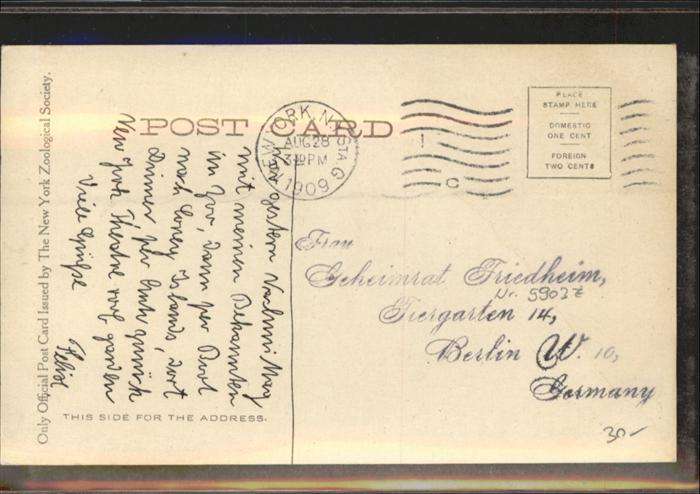 Only Official Post Card Issued by The New York Zoological Society.
POST CARD
NEW YORK, N.Y. STA G
AUG 28
3-PM
1909
C
PLACE
STAMP HERE
DOMESTIC
ONE CENT
FOREIGN
TWO CENTS
War gestern Nachmittag
mit meinen Bekannten
im Zoo, dann per Boot
nach Coney Island, dort
Dinner, per Auto zurück
New York Theatre roof garden
Viele Grüße
Felix
Frau
Geheimrat Friedheim,
Nr. 5903z
Tiergarten 14,
Berlin W. 10,
Germany
30-
THIS SIDE FOR THE ADDRESS.